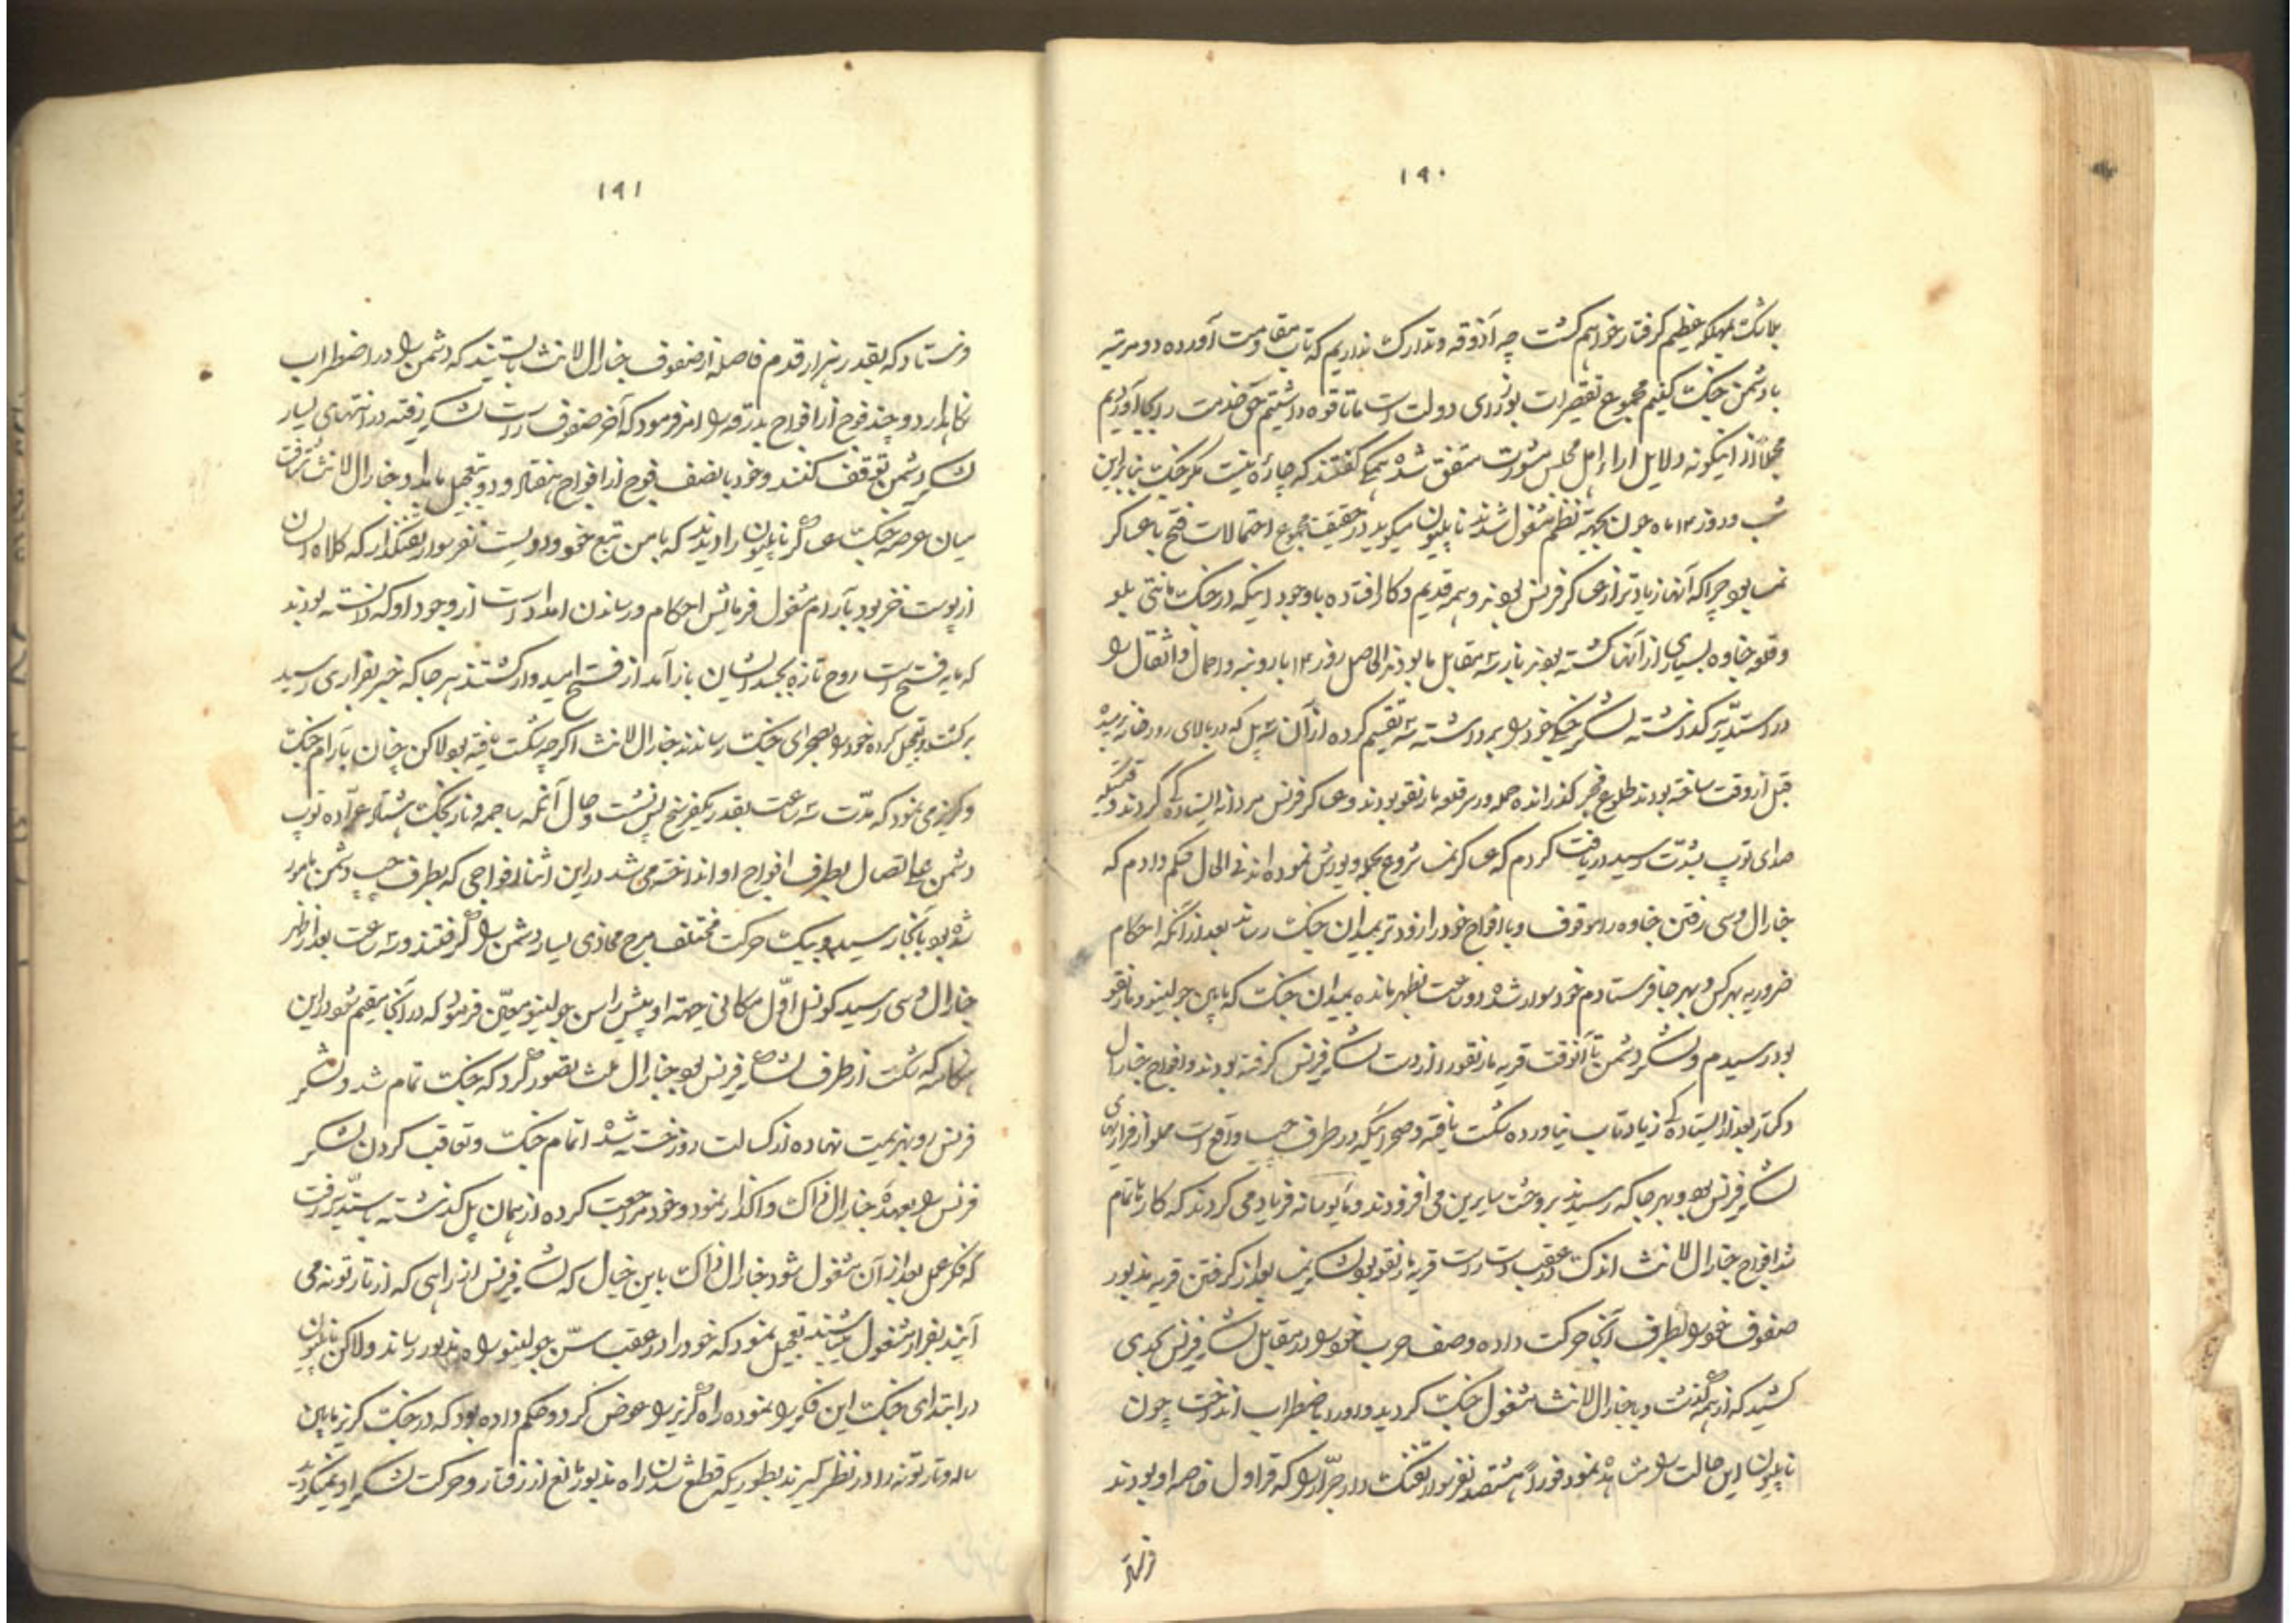 ۱۹۰
بلاشک بمهلکه عظیم گرفتار خواهم گشت چه آذوقه و تدارک نداریم که تاب مقاومت آورده دو مرتبه
با دشمن جنک کنیم مجموع تقصیرات بوزرای دولت است ما تا قوه داشتیم حق خدمت را بجا آوردیم
مجملاً از اینگونه دلایل اراء اهل مجلس مشورت متفق شده همگی گفتند که چارۀ نیست مگر جنک بنابراین
شب و روز ۱۳ ماه جون بجهة نظم مشغول شدند ناپلیون میگوید در حقیقت مجموع احتمالات فتح با عساکر
نمسه بود چرا که آنها زیادتر از عساکر فرنس بودند و همه قدیم و کار افتاده با وجود اینکه در جنک مانتی بلو
و قلعه جناوه بسیاری از آنها کشته بودند باز سه مقابل ما بودند الحاصل روز ۱۴ بار و بنه و احمال و اثقال را
در استدیه گذاشته لشکر جنکی خود را برداشته سه تقسیم کرده از آن سه پل که در بالای رودخانه برمیده
قبل از وقت ساخته بودند طلوع فجر گذرانده حمله ور سر قلعه مارنقو بودند و عساکر فرنس مردانه ایستادگی کردند وقتیکه
صدای توپ بشدت رسید دریافت کردم که عساکر نمسه شروع بحمله و یورش نموده اند فی الحال حکم دادم که
جنارال دسی رفتن جناوه را موقوف و با افواج خود را زودتر بمیدان جنک رساند بعد از آنکه احکام
ضروریه بهر کس و بهر جا فرستادم خود سوار شده دو ساعت بظهر مانده بمیدان جنک که مابین جولینو و مارنقو
بود رسیدم و لشکر دشمن تا آنوقت قریه مارنقو را از دست لشکر فرنس گرفته بودند و افواج جنارال
دکتار بعد از ایستادگی زیاد تاب نیاورده شکست یافته و صحرائیکه در طرف چپ واقع است مملو از فراریهای
لشکر فرنس بود و بهر جا که رسیدند بر وحشت سایرین می افزودند و مأیوسانه فریاد می کردند که کار ما تمام
شد افواج جنارال لانث اندک در عقب دست راست قریه مارنقو بود لشکر نمسه بعد از گرفتن قریه مذبور
صفوف خود را بطرف آنجا حرکت داده وصف حرب خود را در مقابل لشکر فرنس بحدی
کشید که از همه گذشت و با جنارال لانث مشغول جنک گردید و او را باضطراب انداخت چون
ناپلیون این حالت را مشاهده نمود فوراً هشتصد نفر سوار تفنک دار جرّار را که قراول خاصه او بودند
فرستاد
۱۹۱
فرستاد که بقدر هزار قدم فاصله از صفوف جنارال لانث بایستند که دشمن را در اضطراب
نگاه دارد و چند فوج از افواج بدرقه را امر فرمود که آخر صفوف راست لشکر رفته در انتهای یسار
لشکر دشمن توقف کنند و خود با نصف فوج از افواج هفتاد و دو بتعجیل بامداد جنارال لانث شتافت
میان عرصه جنک عساکر ناپلیون را دیدند که با من تبع خود و دویست نفر سوار تفنکدار که کلاه ایشان
از پوست خز بود بآرام مشغول فرمایش احکام و رساندن امداد است از وجود او که دانسته بودند
که مایه فتح است روح تازه بجسد ایشان باز آمد از فتح امیدوار گشتند هر جا که خبر بفراری رسید
برگشته و تعجیل کرده خود را بصحرای جنک رساندند جنارال لانث اگر چه شکست یافته بود لاکن چنان بآرام جنک
و گریز می نمود که مدّت سه ساعت بقدر یکفرسخ پس نشست و حال آنکه ساچمه و نارنجک هشتاد عرّاده توپ
دشمن علی الاتصال بطرف افواج او انداخته می شد در این اثنا افواجی که بطرف چپ دشمن مامور
شده بود بآنجا رسید و بیک حرکت مختلف برج محاذی یسار دشمن را گرفتند و سه ساعت بعد از ظهر
جنارال دسی رسید کونسل اوّل مکانی جهة او پیش راس جولینو معیّن فرمود که در آنجا مقیم شود در این
هنگامه که شکست از طرف لشکر فرنس بود جنارال ملث تصور کرد که جنک تمام شد و لشکر
فرنس رو بهزیمت نهاده از کسالت روز خسته شده اتمام جنک و تعاقب کردن لشکر
فرنس را بعهدۀ جنارال ذاک واگذار نمود و خود مراجعت کرده از همان پل گذشته باستدیه رفت
که فکر عمل بعد از آن مشغول شود جنارال ذاک باین خیال که لشکر فرنس از راهی که از تارتونه می
آیند بفرار مشغول میباشند تعجیل نمود که خود را در عقب سنّ جولینو براه مذبور رساند ولاکن ناپلیون
در ابتدای جنک این فکر را نموده راه گریز را عوض کرد و حکم داده بود که در جنک گریز مابین
ساله و تارتونه را در نظر گیرند بطوریکه قطع شدن راه مذبور مانع از رفتار و حرکت لشکر او نمیگردد